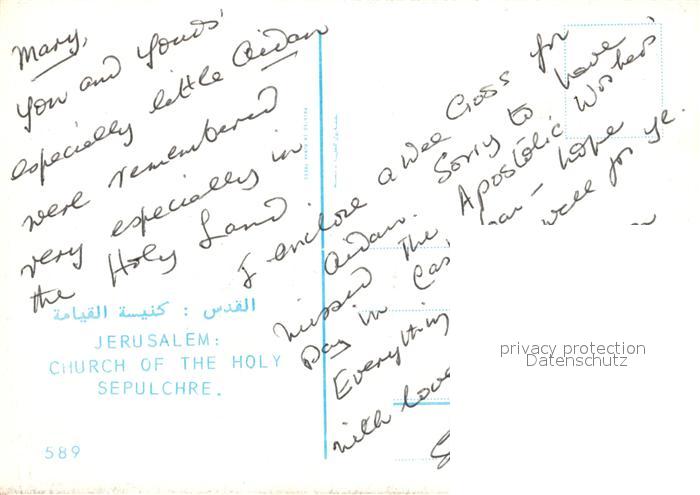 Mary,
You and yours'
especially little Aidan
were remembered
very especially in
the Holy Land.
I enclose a wee Cross for
Aidan. Sorry to have
missed the Apostolic Workers'
Day in Cas
Everything well for ye.
with love
القدس : كنيسة القيامة
JERUSALEM:
CHURCH OF THE HOLY
SEPULCHRE.
589
privacy protection
Datenschutz